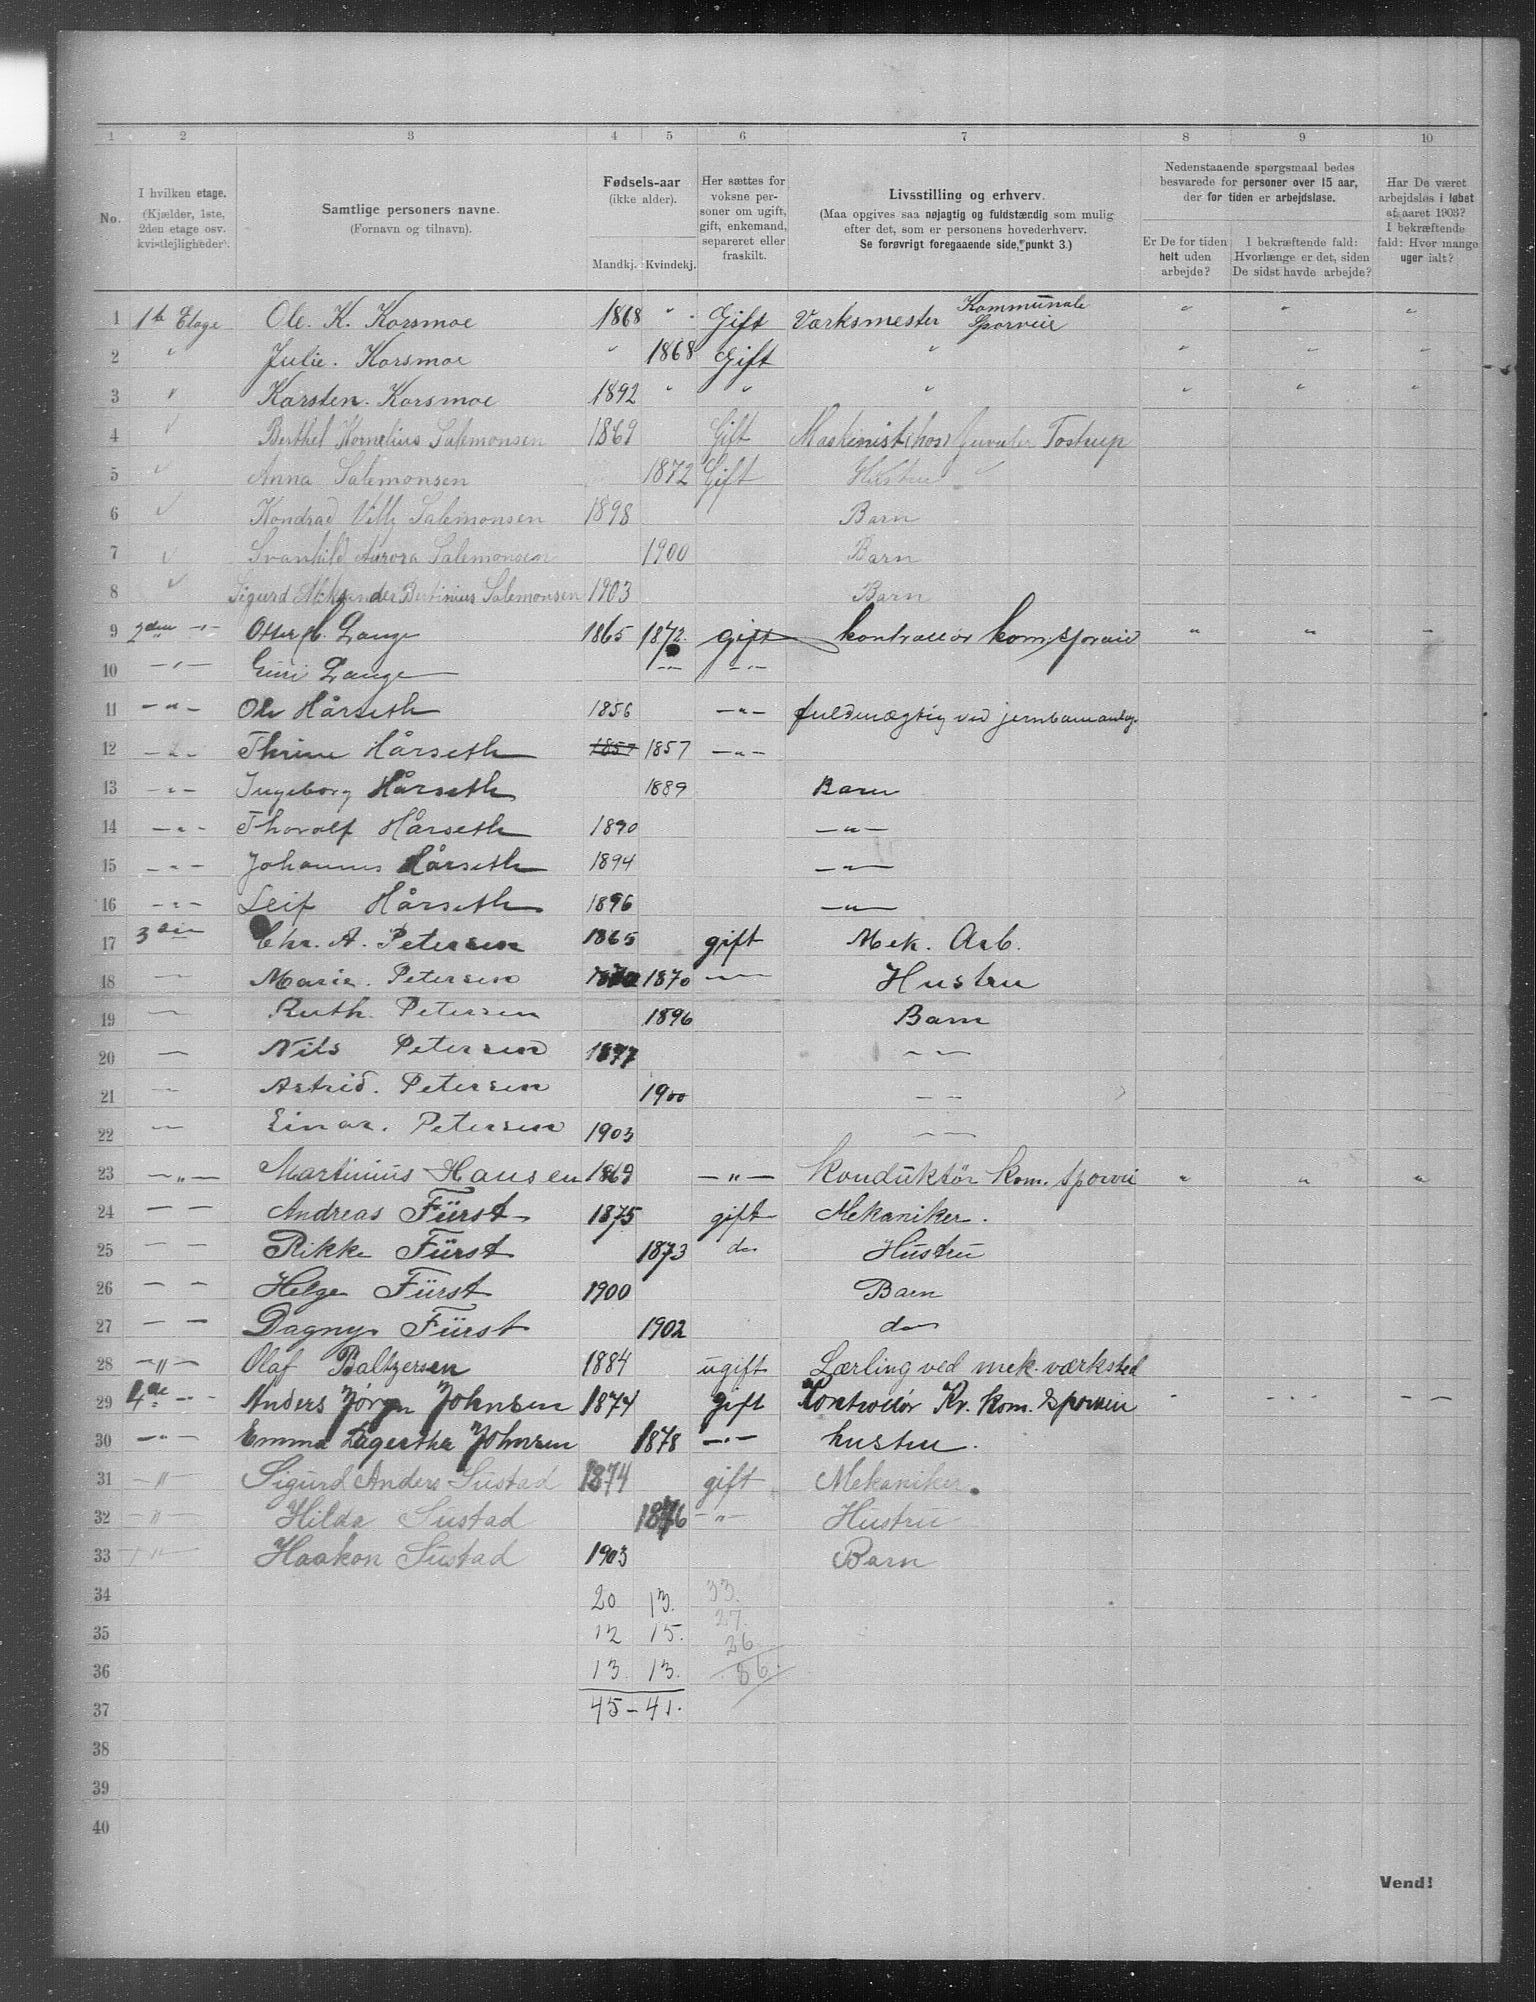 1 2 3 4 5 6 7 8 9 10
No.
I hvilken etage.
(Kjælder, 1ste,
2den etage osv.
kvistlejligheder).
Samtlige personers navne.
(Fornavn og tilnavn).
Fødsels-aar
(ikke alder).
Mandkj. Kvindekj.
Her sættes for
voksne per-
soner om ugift,
gift, enkemand,
separeret eller
fraskilt.
Livsstilling og erhverv.
(Maa opgives saa nøjagtig og fuldstændig som mulig
efter det, som er personens hovederhverv.
Se forøvrigt foregaaende side, punkt 3.)
Nedenstaaende spørgsmaal bedes
besvarede for personer over 15 aar,
der for tiden er arbejdsløse.
Er De for tiden
helt uden
arbejde?
I bekræftende fald:
Hvorlænge er det, siden
De sidst havde arbejde?
Har De været
arbejdsløs i løbet
af aaret 1903?
I bekræftende
fald: Hvor mange
uger ialt?
1 1te Etage Ole. K. Korsmoe 1868 " Gift Værksmester Kommunale Sporveie " " "
2 " Julie. Korsmoe " 1868 Gift " " " "
3 " Karsten. Korsmoe 1892 " " " " " "
4 " Berthel Kornelius Salemonsen 1869 Gift Maskinist hos Juveler Tostrup
5 " Anna Salemonsen 1872 Gift Hustru
6 " Kondrad Villy Salemonsen 1898 Barn
7 " Svanhild Aurora Salemonsen 1900 Barn
8 " Sigurd Aleksander Bertinius Salemonsen 1903 Barn
9 2den -"- Otter Lange 1865 1872. gift kontrollør kom. sporvei " " "
10 -"- Guri Lange -"- -"-
11 -"- Ole Hårseth 1856 -"- fuldmægtig ved jernbaneanlæg.
12 -"- Thrine Hårseth 1857 1857 -"-
13 -"- Ingeborg Hårseth 1889 Barn
14 -"- Thoralf Hårseth 1890 -"-
15 -"- Johannes Hårseth 1894 -"-
16 -"- Leif Hårseth 1896 -"-
17 3die Chr. A. Petersen 1865 gift Mek. Arb.
18 -"- Marie. Petersen 1870 1870 -"- Hustru
19 -"- Ruth. Petersen 1896 Barn
20 -"- Nils Petersen 1897 -"-
21 -"- Astrid. Petersen 1900 -"-
22 -"- Einar. Petersen 1903 -"-
23 -"- Martinius Hansen 1869 -"- Konduktør kom. sporvei " " "
24 -"- Andreas Fürst 1875 gift Mekaniker.
25 -"- Rikke Fürst 1873 do Hustru
26 -"- Helge Fürst 1900 Barn
27 -"- Dagny Fürst 1902 do
28 -"- Olaf Baltzersen 1884 ugift Lærling ved mek. værksted
29 4de -"- Anders Jørgen Johnsen 1874 gift Kontrollør Kr. kom. sporvei - - -
30 -"- Emma Lagertha Johnsen 1878 -"- hustru.
31 -"- Sigurd Anders Sustad 1874 gift Mekaniker.
32 -"- Hilda Sustad 1876 -"- Hustru
33 -"- Haakon Sustad 1903 Barn
34 20 13. 33.
35 12 15. 27.
36 13. 13. 26 86.
37 45 - 41.
38
39
40
Vend!